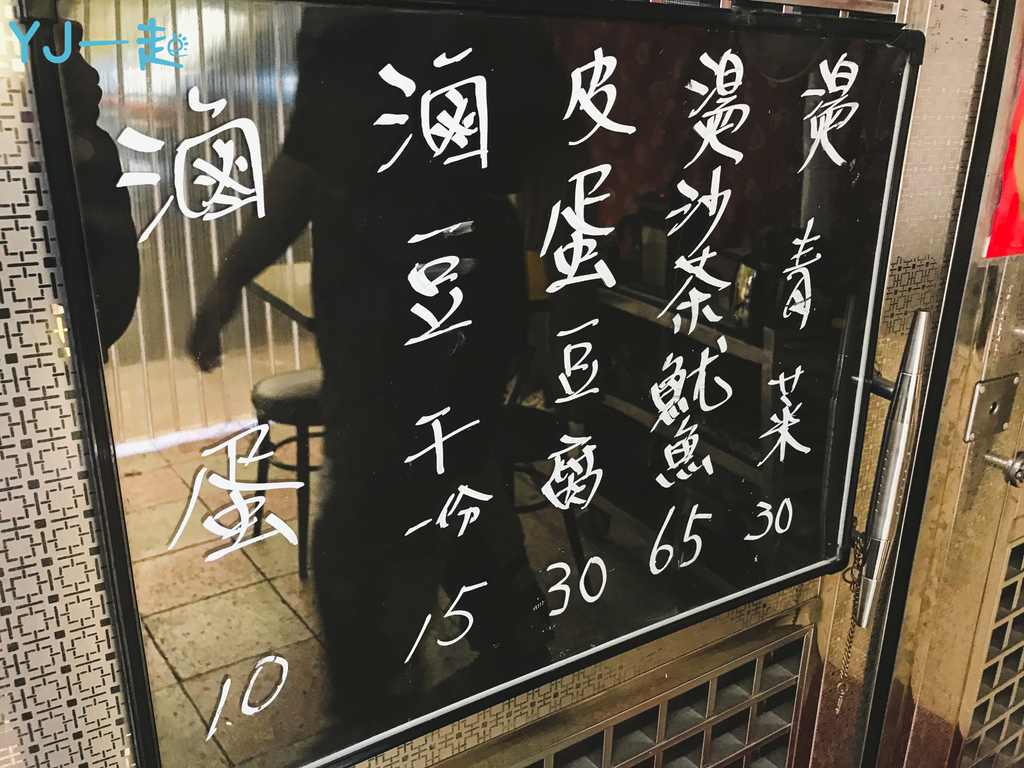 YJ一起
燙青菜30
燙沙茶魷魚65
皮蛋豆腐30
滷豆干一份15
滷蛋10